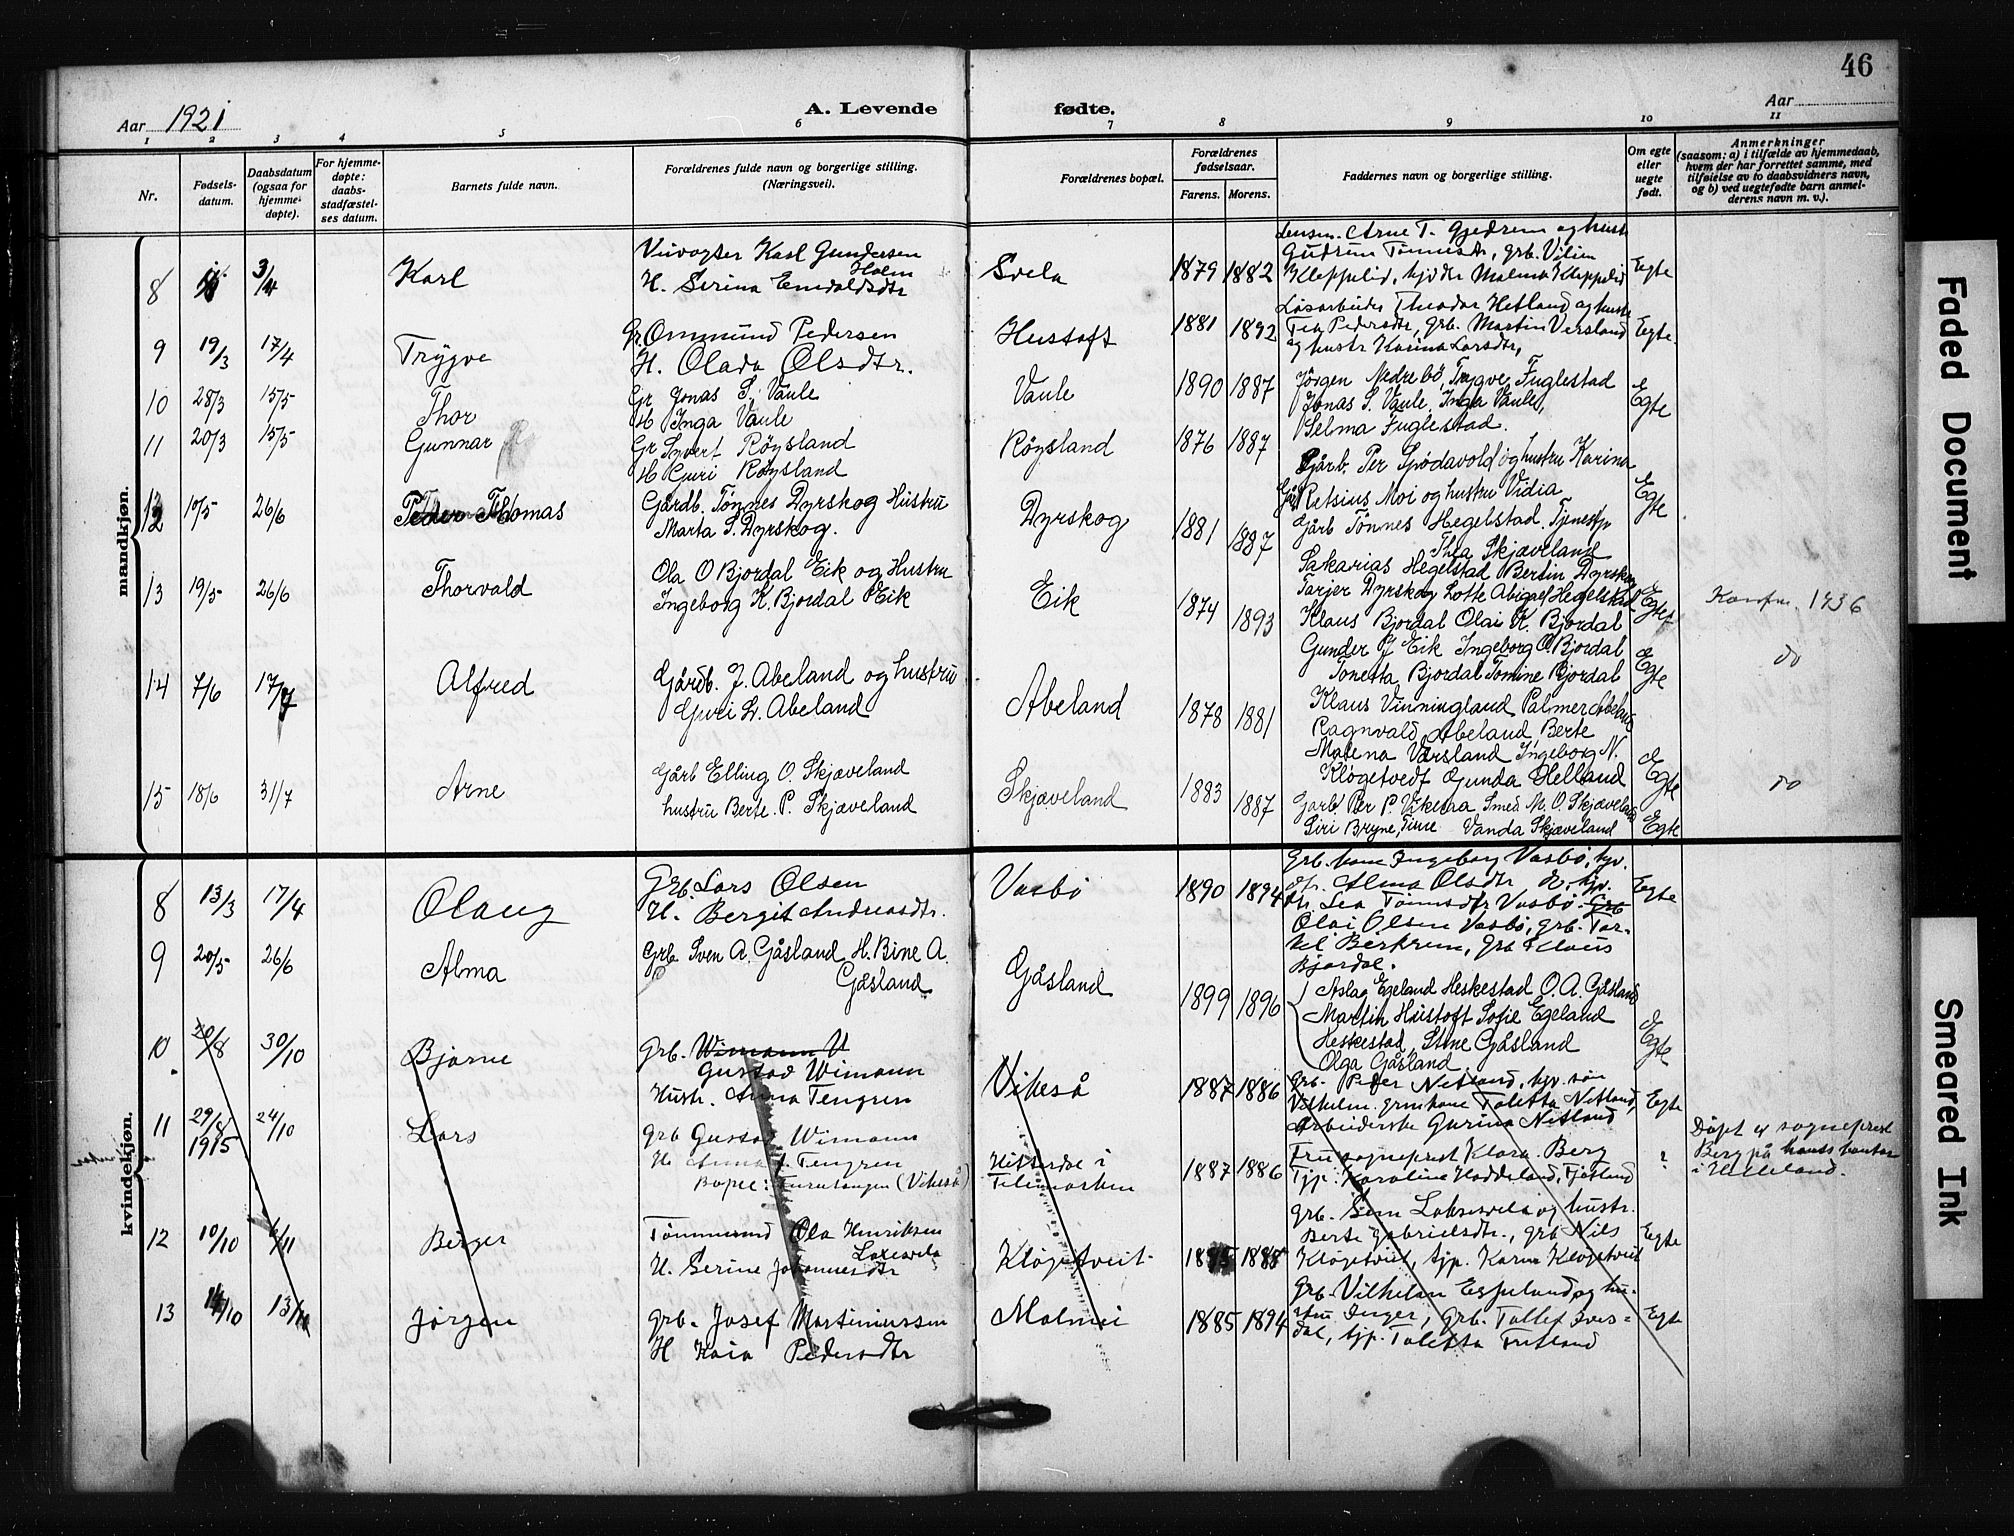 46
Aar 1921
A. Levende fødte.
Aar
1 2 3 4 5 6 7 8 9 10 11
Nr.
Fødsels-
datum.
Daabsdatum
(ogsaa for
hjemme-
døpte).
For hjemme-
døpte:
daabs-
stadfæstel-
ses datum.
Barnets fulde navn.
Forældrenes fulde navn og borgerlige stilling.
(Næringsvei).
Forældrenes bopæl.
Forældrenes
fødselsaar.
Farens. Morens.
Faddernes navn og borgerlige stilling.
Om egte
eller
uegte
født.
Anmerkninger
(saasom: a) i tilfælde av hjemmedaab,
hvem der har forrettet samme, med
tilføielse av to daabsvidners navn,
og b) ved uegtefødte barn anmel-
derens navn m. v.).
mandkjøn.
8 3/4 Karl
Veivogter Karl Gundersen
Holm
H. Serina Enevaldsdtr
Svela 1879 1882
Lensm. Arne T. Gjedrem og hustr
Gudrun Tønnesdtr, grb. Vilim
Kleppelid, hjdtr Malena Kleppelid
Egte
9 19/3 17/4 Trygve
Gr Ommund Pedersen
H. Olada Olsdtr.
Hustoft 1881 1892
Løsarbeider Theodor Hetland og hustr
Tea Pedersdtr, grb. Martin Versland
og hustr Karina Larsdtr,
Egte.
10 28/3 15/5 Thor
Gr Jonas S. Vaule
H Inga Vaule
Vaule 1890 1887
Jörgen Nedrebö, Trygve Fuglestad
Jonas S. Vaule, Inga Vaule,
Selma Fuglestad.
Egte
11 20/3 15/5 Gunnar
Gr Syvert Röysland
H Guri Röysland
Röysland 1876 1887
Gårb. Per Spödavold og hustru Karina
Gårb Retsius Moi og hustru Vidia
Egte
12 10/5 26/6 Peder Thomas
Gårdb. Tønnes Dyrskog Hustru
Marta S. Dyrskog.
Dyrskog 1881 1887
Gårb Tönnes Hegelstad. Tjenestp
Thea Skjæveland
Sakarias Hegelstad Bertin Dyrskog
Tarjer Dyrskog Lotte Abigael Hegelstad
Egte
13 19/5 26/6 Thorvald
Ola O Bjordal Eik og Hustru
Ingeborg K. Bjordal Eik
Eik 1874 1893
Klaus Bjordal Olai K. Bjordal
Gunder J Eik Ingeborg O Bjordal
Tonetta Bjordal Tomine Bjordal
Egte
Konfm. 1936
14 7/6 17/7 Alfred
Gårdb. J. Abeland og hustru
Abeland
Abeland 1878 1881
Klaus Vinningland Palmer Abeland
Ragnvald Abeland Berte
Malena Versland Ingeborg N.
Klögetvedt Gunda Helland
Egte
do
15 18/6 31/7 Arne
Gårb Elling O. Skjæveland
hustru Berte P. Skjæveland
Skjæveland 1883 1887
Garb. Per P. Vikesaa Smed M. O. Skjæveland
Siri Bryne, Time Vanda Skjæveland
Egte
do
kvindekjøn.
8 13/3 17/4 Olaug
Grb. Lars Olsen
H. Bergit Andreasdtr.
Vasbö 1890 1894
Grb. kone Ingeborg Vasbö, hjv.
Alma Olsdtr
Lea Tönnesdtr Vasbö. Grb
Olai Olsen Vasbö, grb. Tor-
kel Birkrem, grb Klaus
Bjordal.
Egte
9 20/5 26/6 Alma
Grb. Sven A. Gåsland H. Bine A.
Gåsland
Gåsland 1899 1896
Aslag Egeland Heskestad O. A. Gåsland
Martin Hustoft Sofie Egeland
Heskestad, Stine Gåsland
Olga Gåsland
Egte
10 20/8 30/10 Bjarne
Grb. Wimann U
Gustav Wimann
Hustr. Anna Tengren
Vikeså 1887 1886
Grb. Peder Netland, hjv. søn
Vilhelm. grmkone Taletta Netland,
Arbeiderske Gurina Netland
Egte
11 29/8 1915 24/10 Lars
Grb Gustav Wimann
H. Anna J. Tengren
Bopel: (Vikeså)
Hitterdal i
Telemarken
1887 1886
Fru sogneprest Klara Berg
Tjp. Karoline Haddeland, Fjotland
?
Døpt av sogneprest
Berg på hans kontor
i Helleland.
12 10/10 6/11 Birger
Tömmermd Ola Henriksen
Laxesvela
H. Serine Johannesdtr
Klögetveit 1885 1888
Grb. Sem Laksesvela og hustr.
Berte Gabrielsdtr., grb Nils
Klögetveit, tjp. Karen Klögetveit
Egte
13 14/10 13/11 Jörgen
Grb. Josef Martiniussen
H Kaia Pedersdtr
Malmei 1885 1894
Grb. Vilhelm Espeland og hu-
stru Inger, Grb. Tollef Ives-
dal, tjp. Taletta Fritland
Egte
Faded Document
Smeared Ink